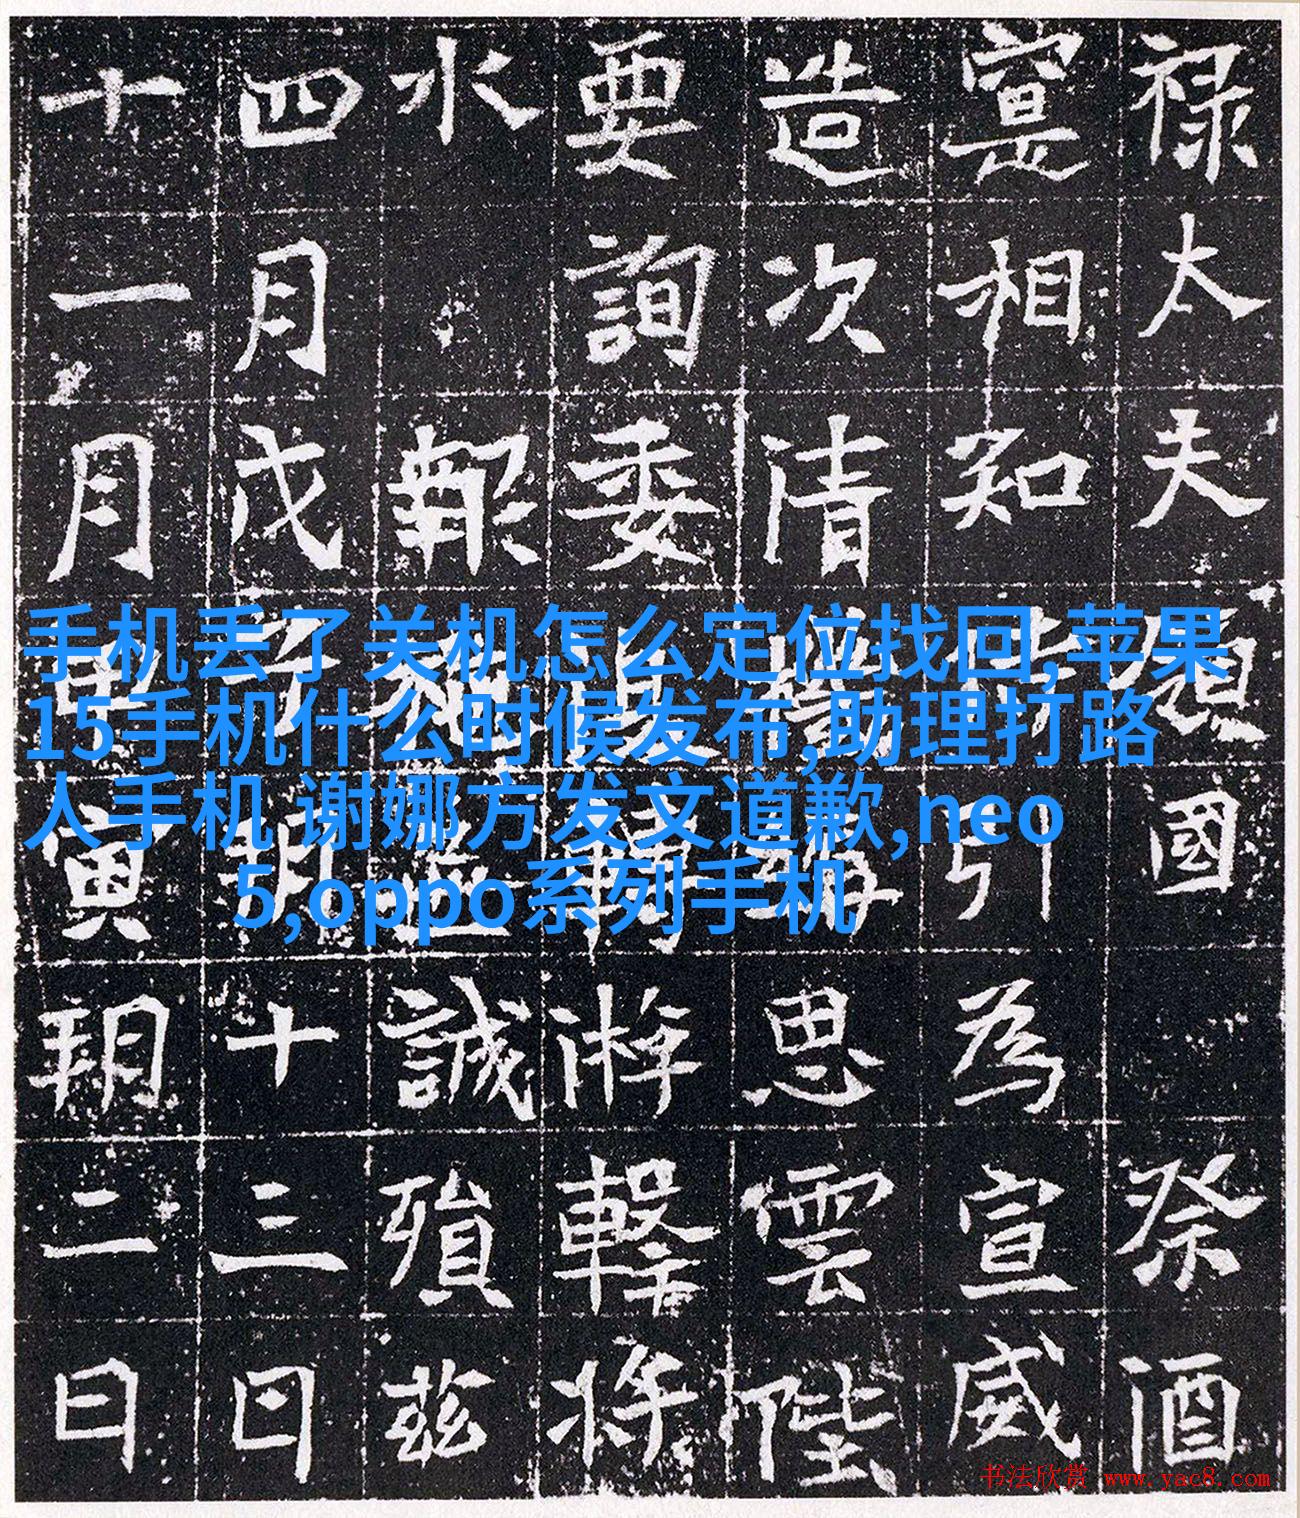 手机丢了关机怎么定位找回,苹果
15手机什么时候发布,助理打路
人手机 谢娜方发文道歉,neo
5,oppo系列手机
禄太夫國祭酒
寔相知引為宣威
造次清思雲陛
要詢委將
水報誠殞茲
四月戊子朔十三日
十一月寅朔二日
书法欣赏 www.yac8.com